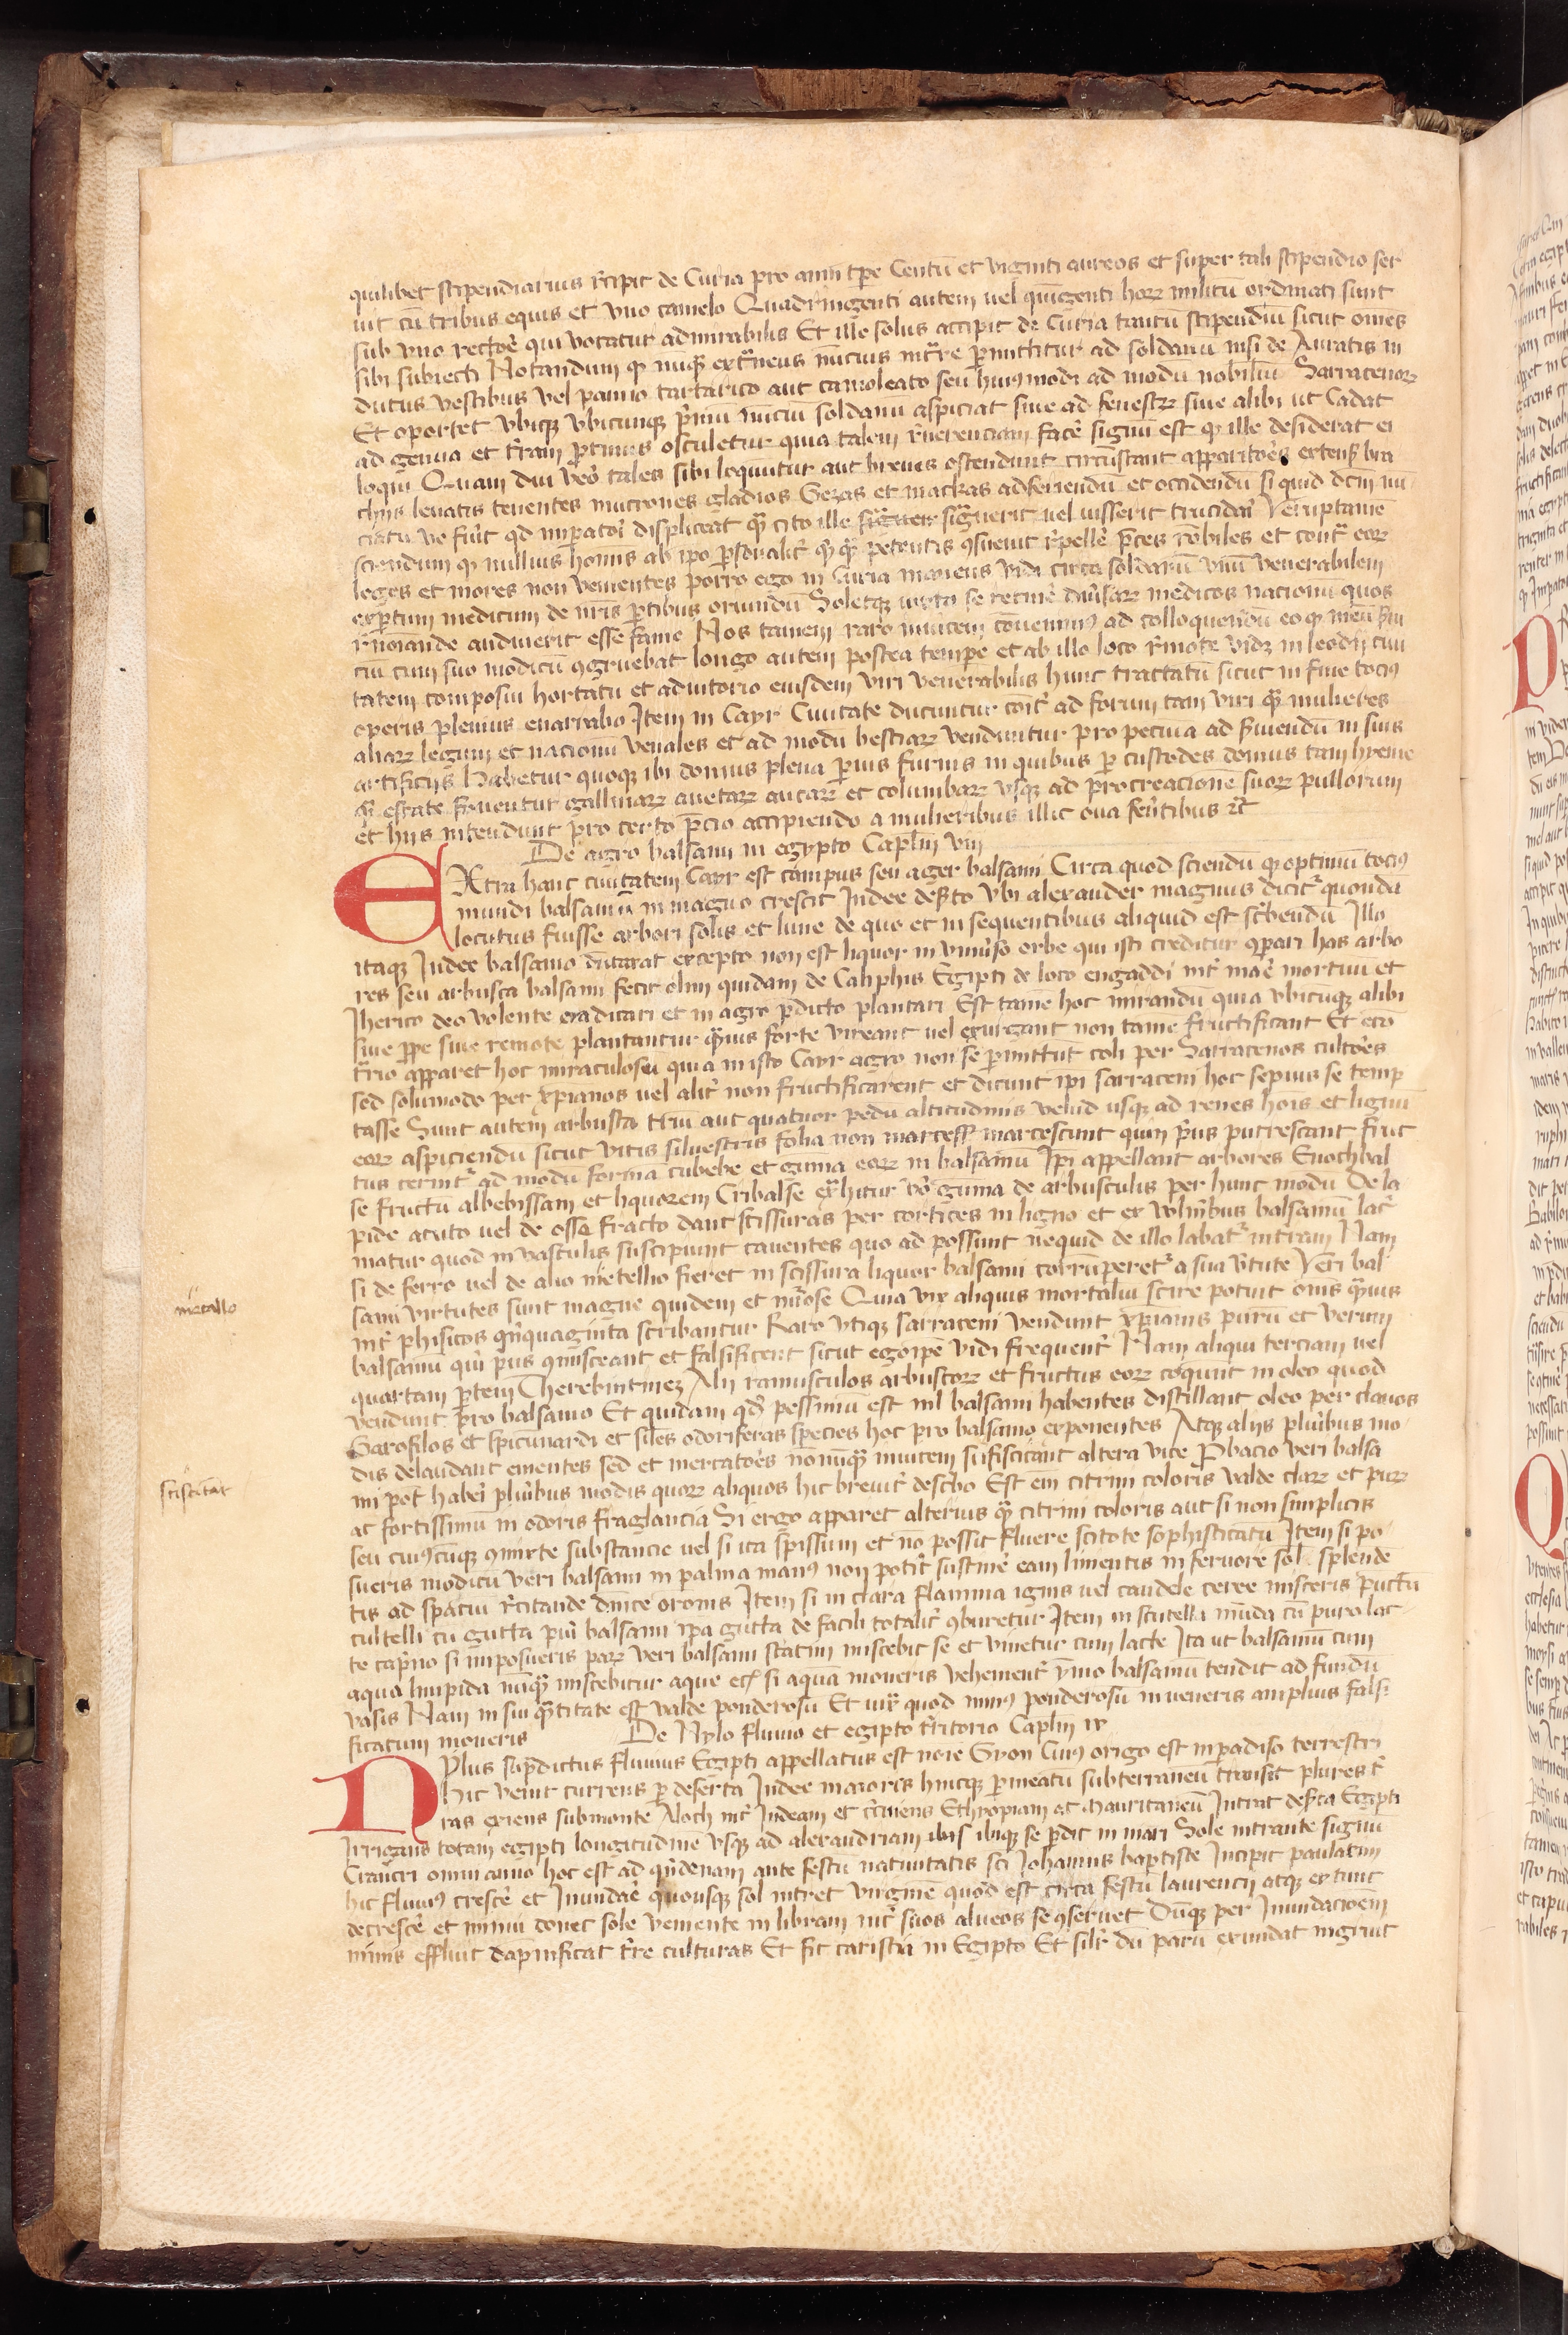 quilibet stipendiarius rĉipit de Curia pro anni tp̄e Centū et viginti aureos et super tali stipendio ser
uit cū tribus equis et vno camelo Quadringenti autem uel quīgenti hoꝝ militū ordinati sunt
sub vno rectoê qui vocatur admirabilis Et ille solus accipit de Curia tantū stipendiū sicut om̄es
sibi subiecti Notandum ꝙ nūqᷓ extᷓneus nūcius intᷓre ꝑmittitur ad soldanū nisi de Auratis in
dutus vestibus vel panno tartarico aut camoleato seu huiꝰmodi ad modū nobiliū Sarracenoꝝ
Et oportet vbiqꝫ vbicunqꝫ p̄mū nūciū soldanū aspiciat siue ad fenestꝝ siue alibi ut Cadat
ad genua et tr̄am ꝓtinus osculetur quia talem r̄uerenciam facê signū est ꝙ ille desiderat ei
loqui Quam diu vêo tales sibi loquntur aut breues ostendunt circūstant apparitoês extens̄ bra
chijs leuatis tenentes mucrones gladios Gezas et mackas adferiendū et occidendū si quid dc̄m nū
ciatū ve fuîit qd imꝑatoî displiceat qᷓ cito ille signuerit uel iusserit trucidaî Veruptamē
sciendum ꝙ nullius hom̄is ab ip̄o ꝑsonalit̂ qᷓ qᷓ petentis ꝯsueuit r̄pellê p̄ces rōbiles et contᷓ eoꝝ
leges et mores non venientes porro ego in Curia manens vidi circa soldanū vnū venerabilem
exꝑtum medicum de nr̄is ꝑtibus oriundū Soletqꝫ iuxta se retinê diûsaꝝ medicos nacionū quos
r̄noīande audiuerit esse fame Nos tamen raro inuicem cōuenimꝰ ad colloquendū eo ꝙ meū s̄ui
ciū cum suo modicū ꝯgruebat longo autem postea tempe et ab illo loco r̄mote vidꝫ in leodij ciui
tatem composui hortatu et adiutorio eiusdem viri venerabilis hunc tractatū sicut in fine tociꝰ
operis plenius enarrabo Item in Cayr Ciuitate ducuntur cōit̂ ad forum tam viri qᷓ mulieres
aliaꝝ legum et nacionū venales et ad modū bestiaꝝ venduntur pro pecuia ad s̄uiendū in suis
artificijs Habetur quoqꝫ ibi domus plena ꝑuis furnis in quibus ꝑ custodes domus tam hyeme
qᷓ estate fouentur gallinaꝝ anetaꝝ aucaꝝ et columbaꝝ vsqꝫ ad procreacionē suoꝝ pullorum
et hijs intendunt pro certo p̄cio accipiendo a mulieribus illic oua fer̂tibus ⁊c̄
De agro balsami in egypto Caplm̄ viij
EXtra hanc ciuitatem Cayr est campus seu ager balsami Circa quod sciendū ꝙ optimū tociꝰ
mundi balsamū in magno crescit Indee des̄to vbi alexander magnus dicit̂ quondā
locutus fuisse arbori solis et lune de quo et in sequentibus aliquid est sc̄bendū Illo
itaqꝫ Indee balsamo dūtaxat excepto non est liquor in vniûso orbe qui isti creditur ꝯpari has arbo
res seu arbusta balsami fecit olim quidam de Caliphis Egipti de loco engaddi int̂ maê mortuū et
Iherico deo volente eradicari et in agro p̄dicto plantari Est tamē hoc mirandū quia vbicūqꝫ alibi
siue ꝓpe siue remote plantantur qᷓuis forte vireant uel exurgant non tamē fructificant Et ecō
trio apparet hoc miraculosū quia in isto Cayr agro non se ꝑmittūt coli per Sarracenos cultoês
sed solūmodo per xp̄ianos uel alit̂ non fructificarent et dicunt ip̄i sarraceni hoc sepius se temp
tasse Sunt autem arbusta triū aut quatuor pedū altitudinis velud usqꝫ ad renes hōis et lignū
eoꝝ aspiciendū sicut vitis siluestris folia non marcess̄ marcescunt quin p̂us putrescant fruc
tus cernit̂ ad modū formā cubebe et gūma eoꝝ in balsamū Ip̄i appellant arbores Enochbal
se fructū albebissam et liquorem Cribalse exᷓhitur vô gūma de arbusculis per hunc modū De la
pide acuto uel de osse fracto dant scissuras per cortices in ligno et ex vuln̂ibus balsamū laĉ
matur quod in vasculis suscipiunt cauentes quo ad possunt nequid de illo labat̂ in tr̄am Nam
si de ferro uel de alio metello fieret in scissura liquor balsami corrūperet̂ a sua v̂tute Veri bal
sami virtutes sunt magne quidem et nūose Quia vix aliquis mortaliū scire potuit om̄is qᷓuis
int̂ phisicos qn̂quaginta scribantur Raro vtiqꝫ sarraceni vendunt xp̄ianis purū et verum
balsamū qui p̂us ꝯmisceant et falsificent sicut ego ip̄e vidi frequent̂ Nam aliqui terciam uel
quartam ꝑtem Therebintinez Alij ramusculos arbustoꝝ et fructus eoꝝ coquūt in oleo quod
vendunt pro balsamo Et quidam qd̂ pessimū est nīl balsami habentes distillant oleo per clauos
Garofilos et spicūnardi et siles odoriferas species hoc pro balsamo exponentes Atqꝫ alijs pluîbus mo
dis delaudant ementes sed et mercatoês nōnūqᷓ inuicem suscitant altera vice Ꝓbacio veri balsa
mi pot̂ haberî pluîbus modis quoꝝ aliquos hic breuit̂ desc̄bo Est em̄ citrini coloris valde claꝝ et puꝝ
ac fortissimū in odoris fraglancia Si ergo apparet alterius qᷓ citrini coloris aut si non simplicis
seu cuiꝰcūqꝫ ꝯmixte substancie uel si ita spissum et nō possit fluere scitote sophisticatū Item si po
sueris modicū veri balsami in palma manꝰ non potît sustinê eam linientis in feruore sol̄ splendē
tis ad spaciū r̄citande dn̄ice or̄onis Item si in clara flamma ignis uel candele ceree misceris pūctū
cultelli cū gutta puî balsami ip̄a gutta de facili totalit̂ ꝯburetur Item in scutella mūda cū puro lac
te capîno si imposueris paꝝ veri balsami statim miscebit se et vnietur cum lacte Ita ut balsamū cum
aqua limpida nūqᷓ miscebitur aque ec̄ si aquā moueris vehement̂ ymo balsamū tendit ad fundū
vasis Nam in sui qᷓtitate est valde ponderosū Et iux̂ quod minꝰ ponderosū inueneris amplius falsi
ficatum moueris De Nylo fluuio et egipto tr̂ritorio Caplm̄ ix
NYlus sup̂dictus fluuius Egipti appellatus est noīe Gyon Ciuꝰ origo est in ꝑadiso terrestri
Hic venit currens ꝑ deserta Indee maioris hincqꝫ ꝑ meatū subterraneū transit plures t̂
ras exiens sub monte Aloch int̂ Indeam et c̄cuiens Ethyopiam ac Mauritaneū Intrat des̄ta Egipti
Irrigans totam egipti longitudinē vsqꝫ ad alexandriam ibis ibiqꝫ se ꝑdit in mari Sole intrante signū
Crancri omni anno hoc est ad qn̂denam ante festū natiuitatis sc̄i Iohannis baptiste Incipit paulatim
hic fluuiꝰ crescê et Inundaê quousqꝫ sol intret virginē quod est circa festū laurencij atqꝫ extunc
decrescê et minui donec sole veniente in libram int̂ suos alueos se ꝯseruet Dūqꝫ per Inundacōem
nimis effluit dapnificat tr̂re culturas Et fit caristia in Egipto Et silr̄ dū parū exundat ingruit
metallo
sciscitāt